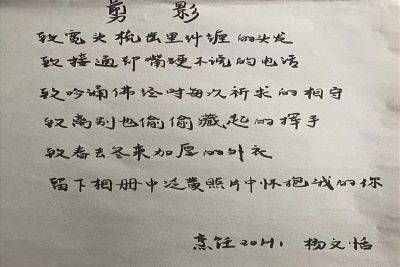 剪影
致宽头梳齿里纠缠的头发
致接通却嘴硬不说的电话
致吟诵佛经时每次祈求的相守
致离别也偷偷藏起的挥手
致春去冬来加厚的外衣
留下相册中泛黄照片中怀抱我的你
烹饪2041, 杨文恬